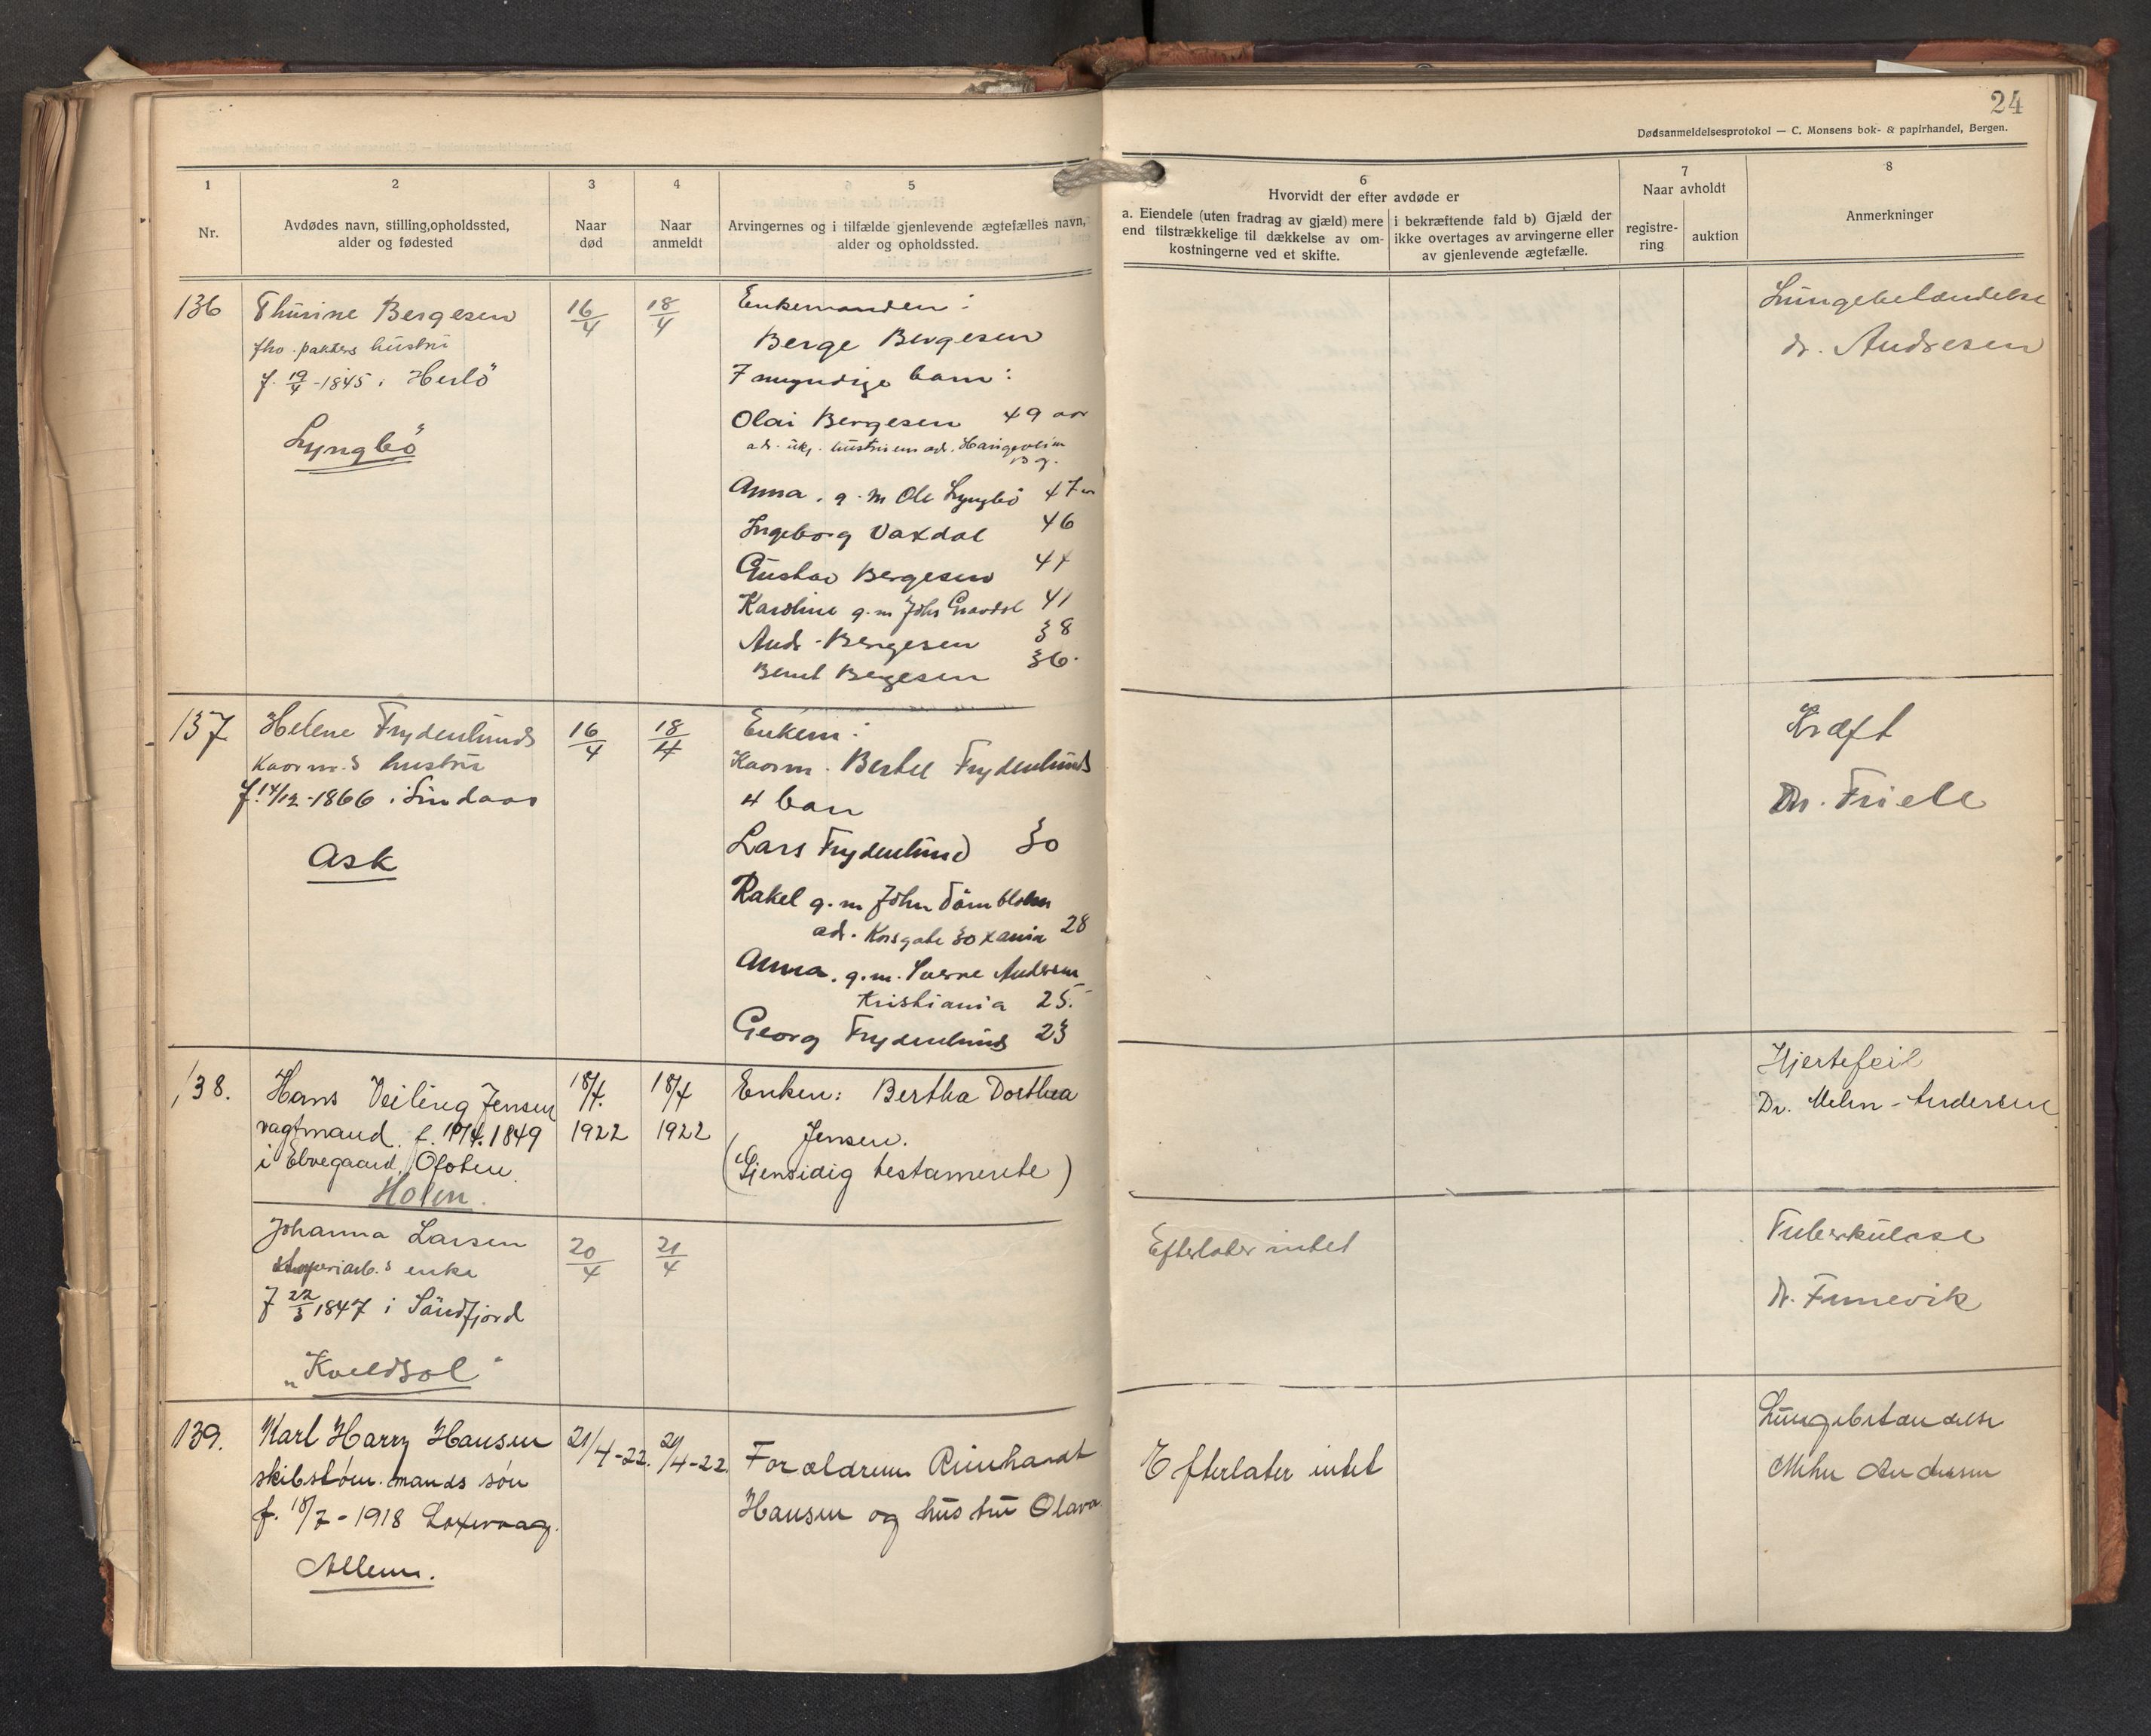 24
Dødsanmeldelsesprotokol — C. Monsens bok- & papirhandel, Bergen.
1
Nr.
2
Avdødes navn, stilling, opholdssted,
alder og fødested
3
Naar
død
4
Naar
anmeldt
5
Arvingernes og i tilfælde gjenlevende ægtefælles navn,
alder og opholdssted.
6
Hvorvidt der efter avdøde er
a. Eiendele (uten fradrag av gjæld) mere
end tilstrækkelige til dækkelse av om-
kostningerne ved et skifte.
i bekræftende fald b) Gjæld der
ikke overtages av arvingerne eller
av gjenlevende ægtefælle.
7
Naar avholdt
registre-
ring
auktion
8
Anmerkninger
136
Thurine Bergesen
fho. pakters hustru
f. 19/4 - 1845 i Herlö
Lyngbö
16/4
18/4
Enkemanden:
Berge Bergesen
7 myndige barn:
Olai Bergesen 49 aar
Anna. g. m Ole Lyngbö 47
Ingeborg Vaxdal 46
Gustav Bergesen 44
Karoline g. m Johs Gravdal 41
Andr. Bergesen 38
Bernt Bergesen 36.
Lungebetændelse
dr. Andresen
137
Helene Frydenlunds
Kaarm.s hustru
f. 14/12 - 1866 i Lindaas
Ask
16/4
18/4
Enkem:
Kaarm. Bertel Frydenlunds
4 barn
Lars Frydenlund 30
Rakel g. m John
ad. Korsgate 30 Xania 28
Anna. g. m. Sverre Andersen
Kristiania 25.
Georg Frydenlund 23
Kræft
Dr. Friele
138.
Hans Veiling Jensen
vagtmand. f. 10/4. 1849
i Elvegaard, Ofoten.
Holen.
18/4.
1922
18/4
1922
Enken: Bertha Dorthea
Jensen.
(Gjensidig testamente)
Hjertefeil
Dr. Mehn-Andersen
Johanna Larsen
enke
f 22/3 1847 i Söndfjord
„Kveldsol"
20/4
21/4
Efterlater intet
Tuberkulose
Dr. Funevik
139.
Karl Harry Hansen
skibstöm.mands sön
f. 18/7 - 1918 Laxevaag.
Alleen.
21/4-22.
21/4-22.
Forældrene Reinhardt
Hansen og hustru Olava
Efterlater intet
Lungebetændelse
Mehn Andersen